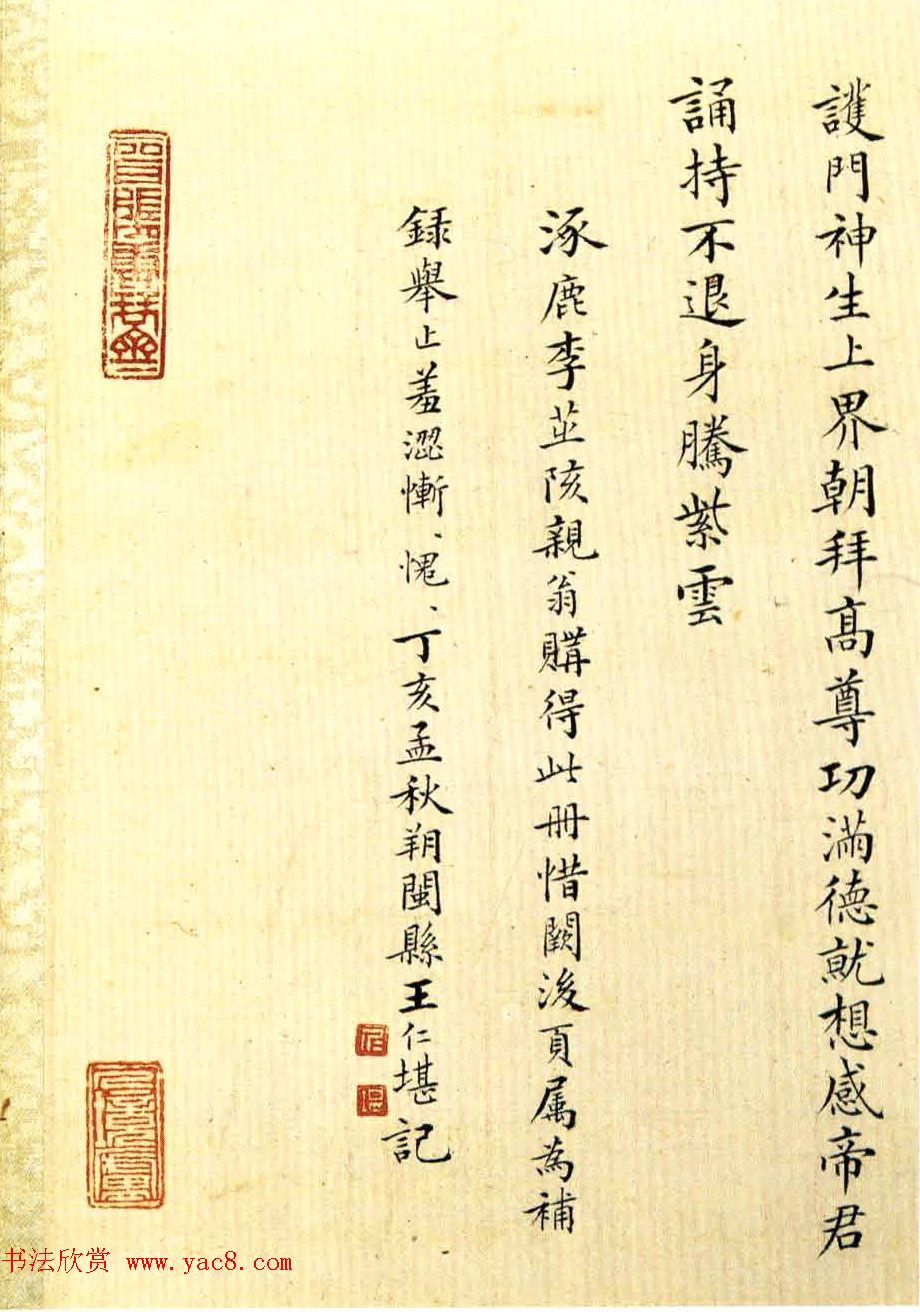 護門神生上界朝拜髙尊功滿德就想感帝君
誦持不退身騰紫雲
涿鹿李芷陔親翁購得此册惜闕後頁属為補
録舉止羞澀慚、愧、丁亥孟秋朔閩縣王仁堪記
书法欣赏 www.yac8.com